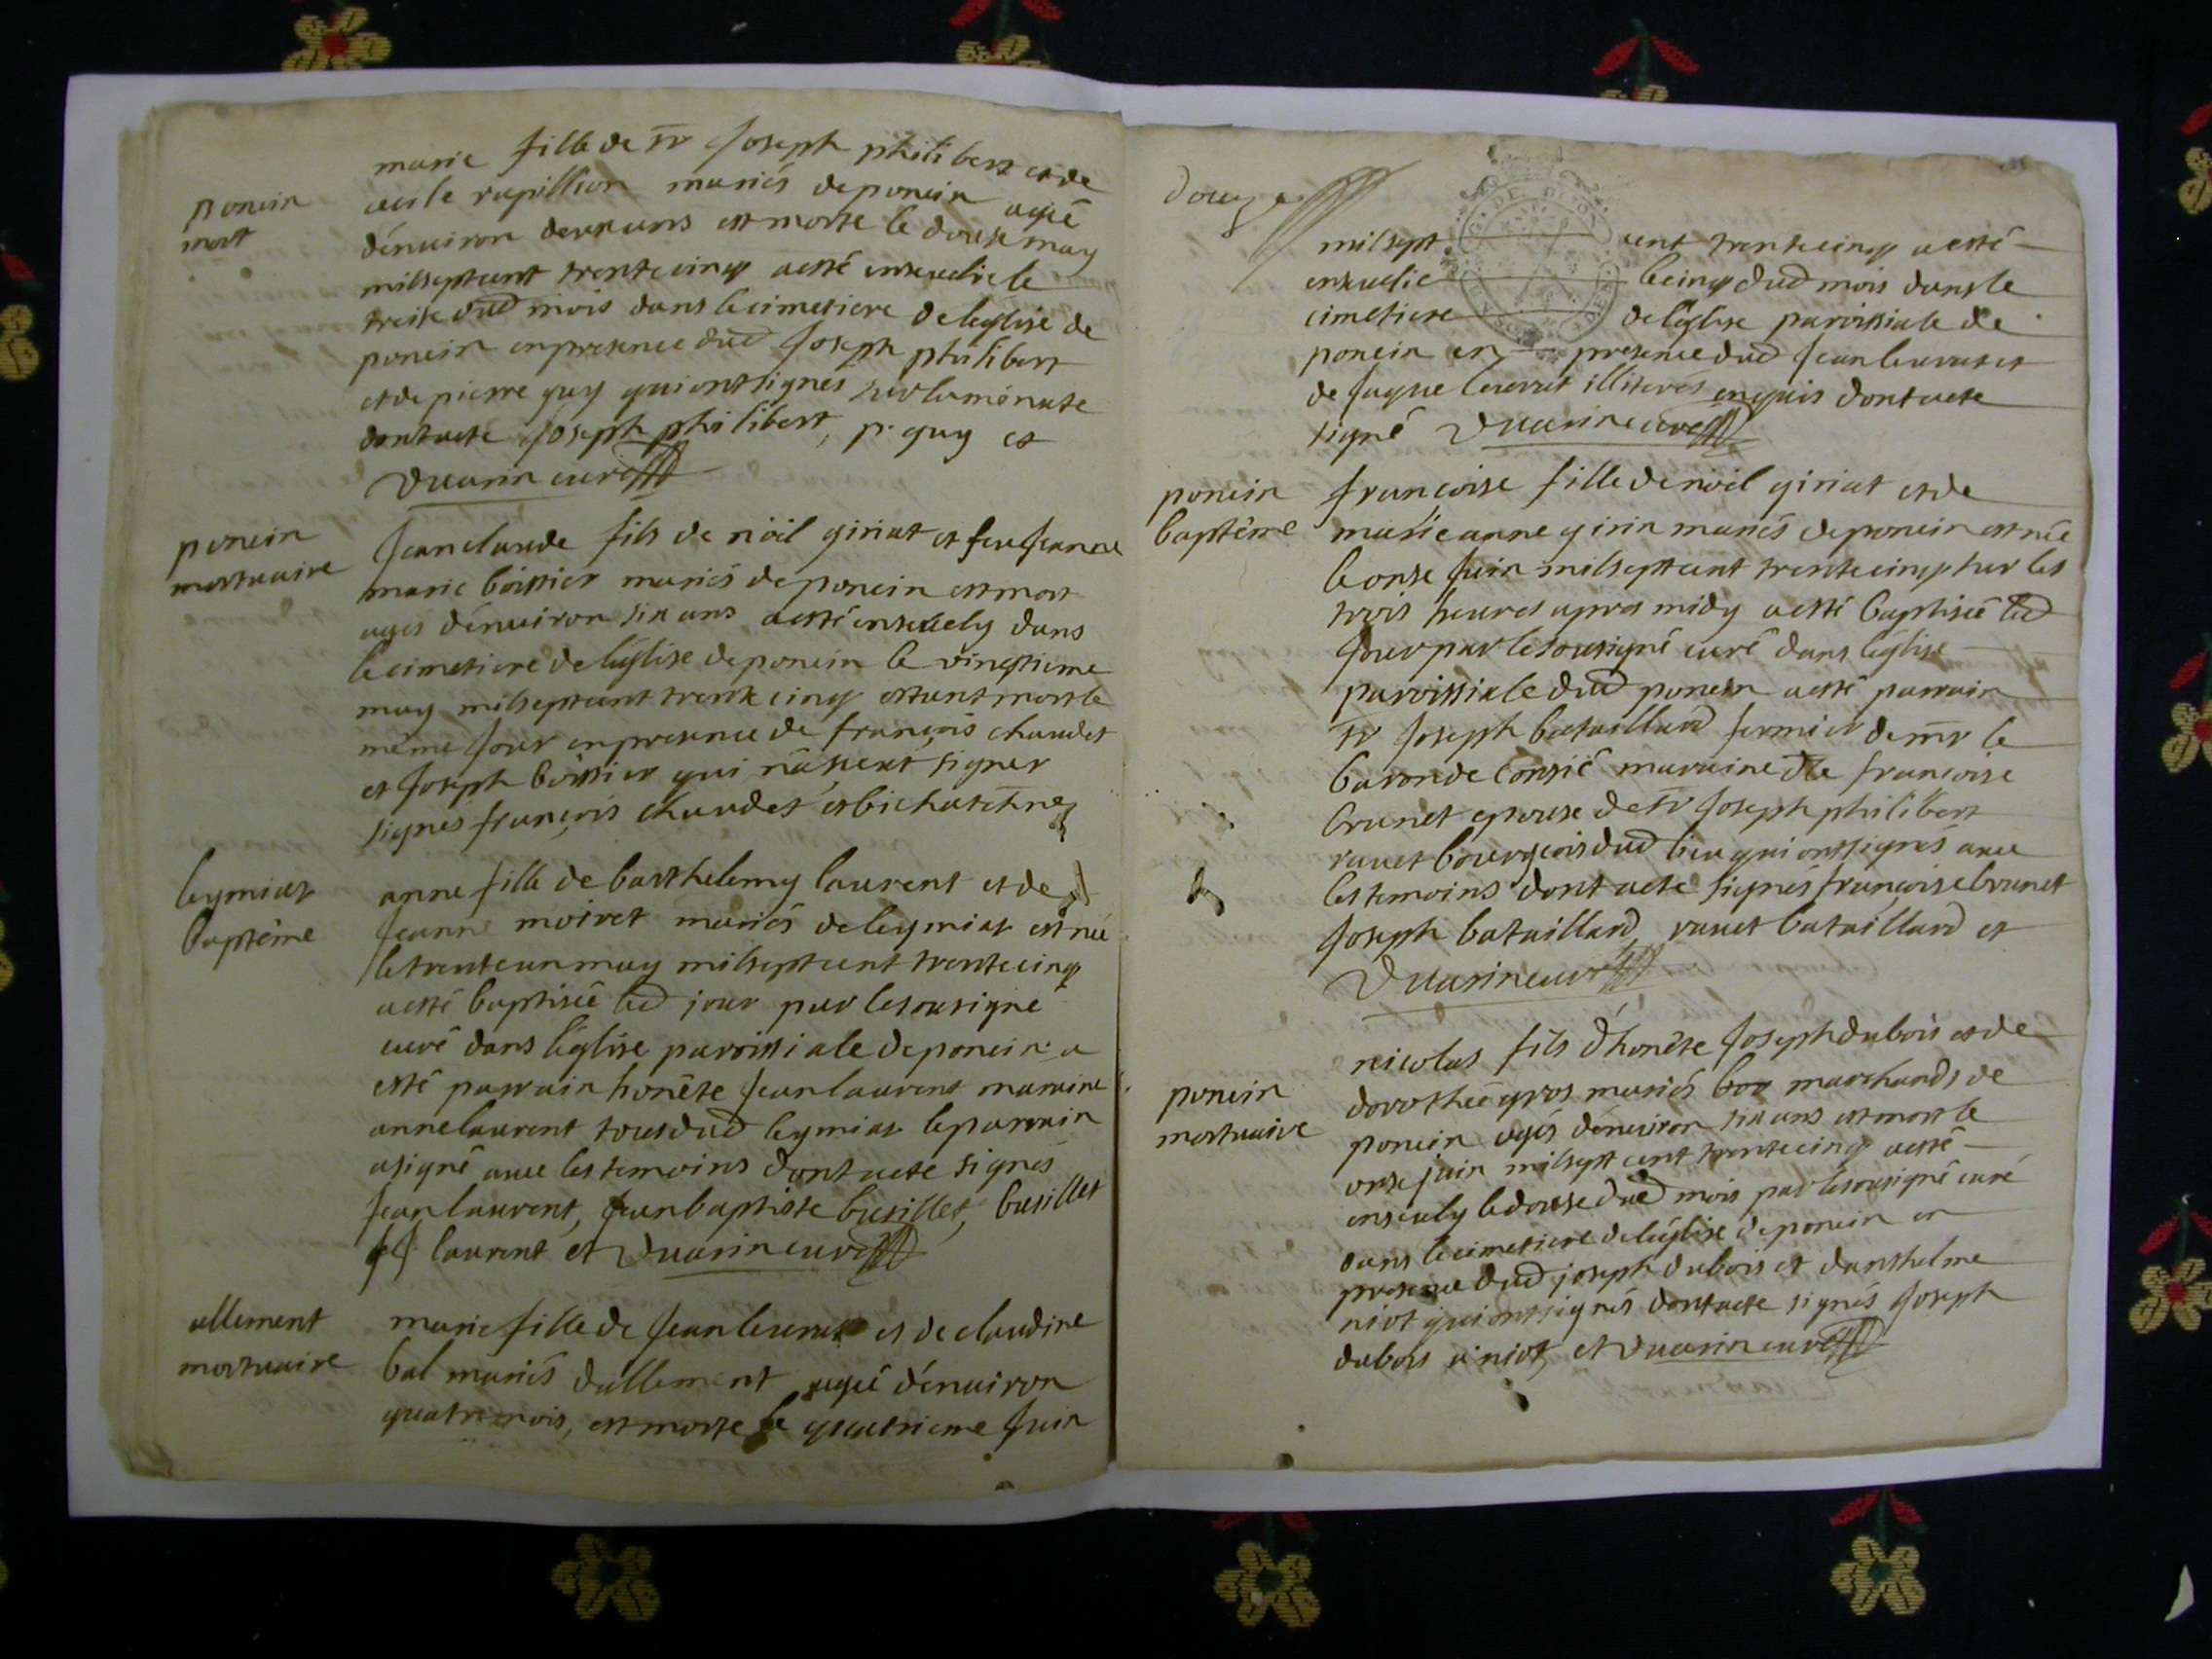 poncin
mort
marie fille de sr Joseph philibert et de
cecile rapillion mariés de poncin agée
d'enuiron deux ans est morte le douse may
milseptcent trente cinq a esté enseuelie le
treise dud mois dans le cimetiere de leglise de
poncin en presence dud Joseph philibert
et de pierre guy qui ont signés sur la minute
dont acte Joseph philibert, p. guy et
Duarin curé
poncin
mortuaire
Jean claude fils de noël giriat et feu Jeanne
marie boissier mariés de poncin est mort
agés d'enuiron six ans a esté enseuely dans
le cimetiere de léglise de poncin le vingtieme
may milseptcent trente cinq estant mort le
même Jour en presence de françois chaudet
et Joseph boissier qui signer
signés françois chaudet et bichat
leymiat
baptême
anne fille de barthelemy laurent et de
Jeanne moiret mariés de leymiat est née
le trente un may milseptcent trente cinq
a esté baptisée led jour par le sousigné
curé dans léglise paroissiale de poncin a
esté parrain honête Jean laurent marraine
anne laurent tous dud leymiat le parrain
a signé auec les temoins dont acte signés
Jean laurent, Jean baptiste busillet, busillet
laurent et Duarin curé
allement
mortuaire
marie fille de Jean leurat et de claudine
bal mariés dallement agée d'enuiron
quatre mois, est morte le quatrieme Juin
douze
milsept cent trente cinq a esté
enseuelie le cinq dud mois dans le
cimetiere de léglise paroissiale de
poncin en presence dud Jean leurat et
de Jaque leurat illiterés enquis dont acte
signé Duarin curé
poncin
baptême
françoise fille de noël giriat et de
marie anne girin mariés de poncin est née
le onse Juin milseptcent trente cinq sur les
trois heures apres midy a esté baptisée led
Jour par le sousigné curé dans léglise
paroissiale dud poncin a esté parrain
sr Joseph bataillard fermier de mr le
baron de marraine dlle francoise
brunet epouse de sr Joseph philibert
rauet bourgeois dud lieu qui ont signés auec
les temoins dont acte signés françoise brunet
Joseph bataillard, rauet bataillard et
Duarin curé
poncin
mortuaire
nicolas fils d'honête Joseph dubois et de
dorothée gros mariés marchands de
poncin agés d'enuiron six ans est mort le
onse juin milsept cent trente cinq a esté
enseuely le douse dud mois par le sousigné curé
dans le cimetiere de léglise de poncin en
presence dud joseph dubois et d'anthelme
niot qui ont signés dont acte signés Joseph
dubois a niot, et Duarin curé